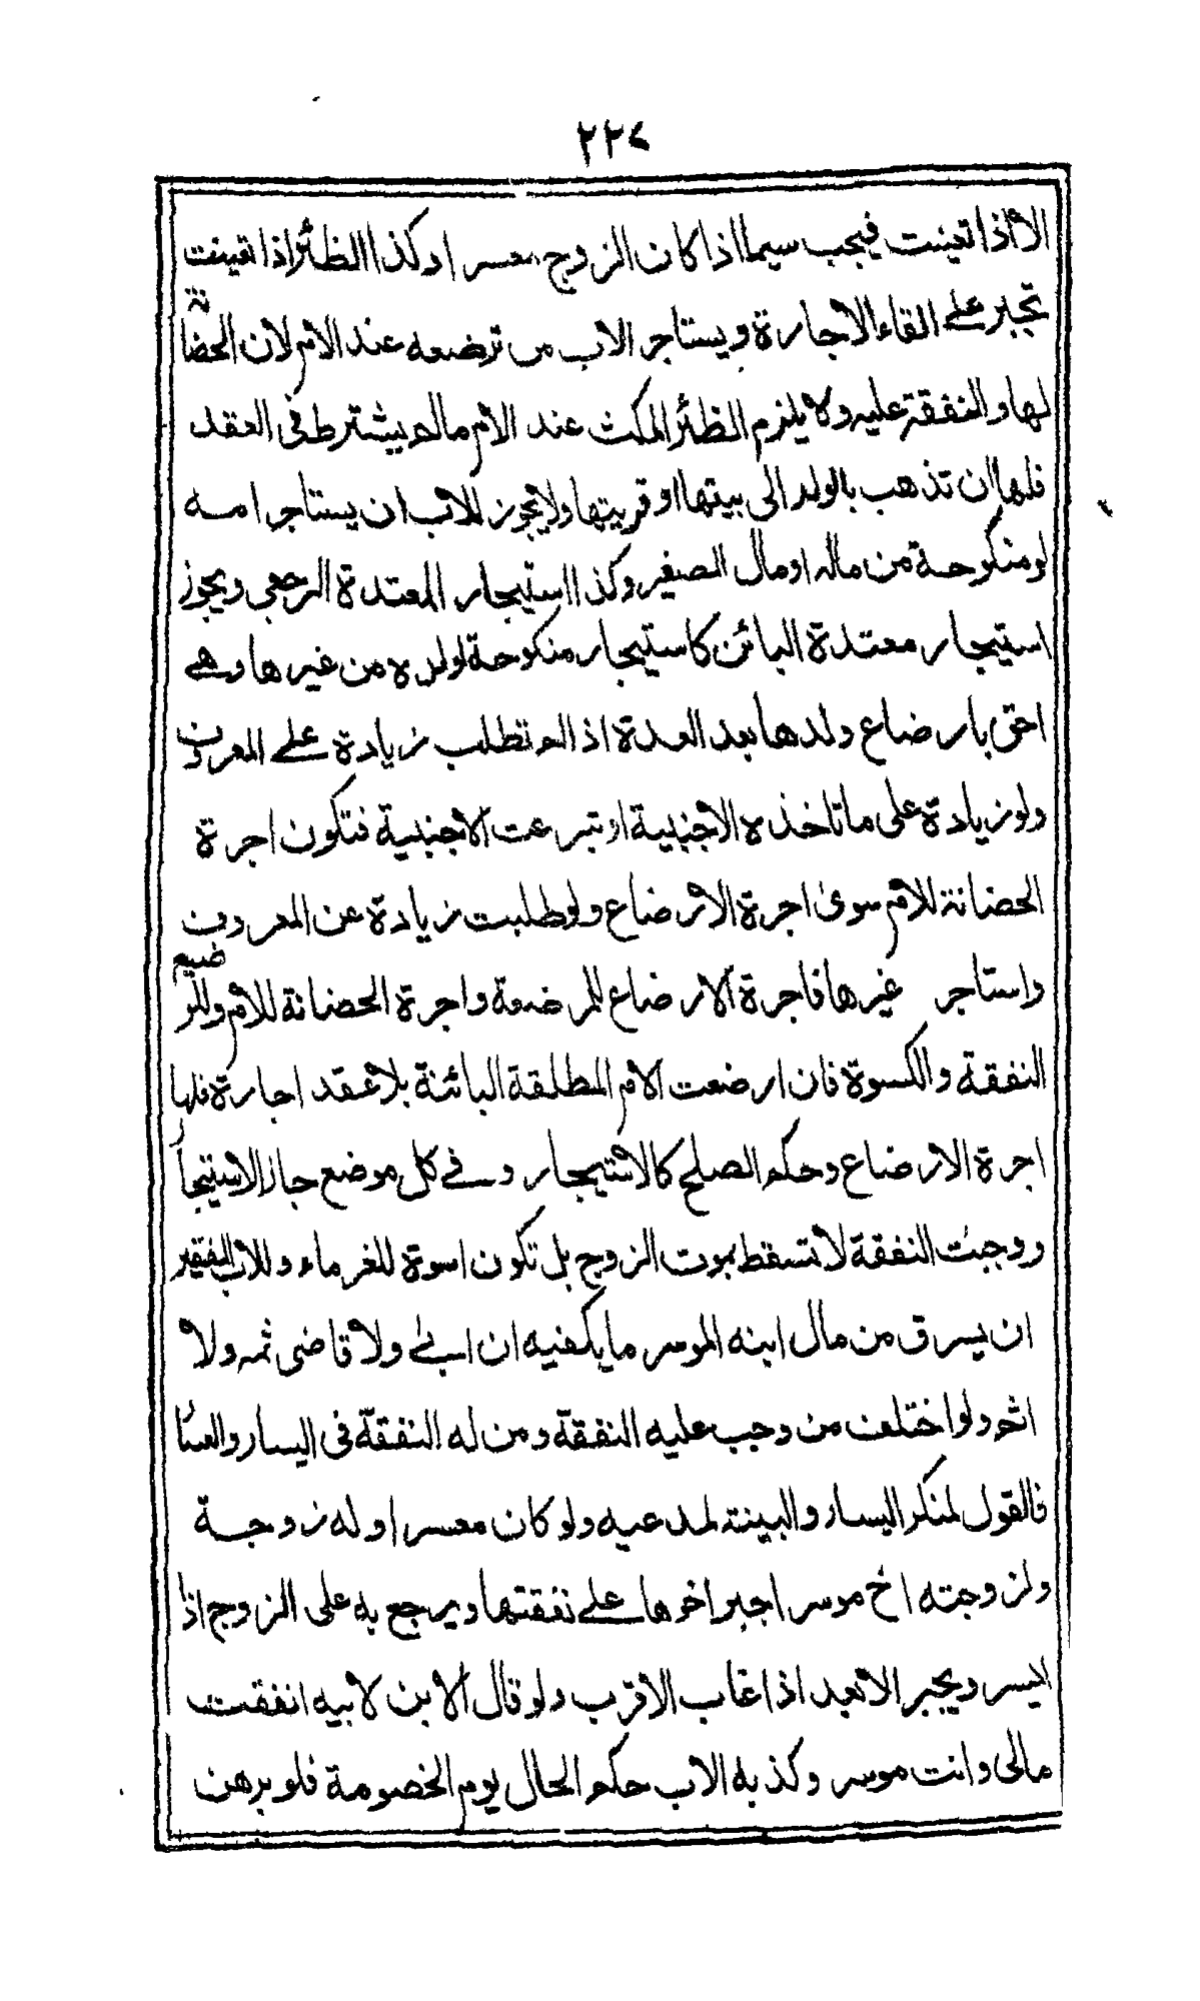 ٢٢٧
الا اذا تعينت فيجب سيما اذا كان الزوج معسرا وكذا الظئر اذا تعينت
تجبر على القاء الاجارة ويستاجر الاب من ترضعه عند الام لان الحضانة
لها والنفقة عليه ولا يلزم الظئر المكث عند الام مالم يشترط فى العقد
فلها ان تذهب بالولد الى بيتها او قريتها ولا يجوز للاب ان يستاجر امه
لو منكوحة من ماله او مال الصغير وكذا استيجار المعتدة الرجعي ويجوز
استيجار معتدة البائن كاستيجار منكوحة لولده من غيرها وهى
احق بارضاع ولدها بعد العدة اذا لم تطلب زيادة على المعروف
ولو زيادة على ما تاخذه الاجنبية او تبرعت الاجنبية فتكون اجرة
الحضانة للام سوى اجرة الارضاع ولو طلبت زيادة عن المعروف
واستاجر غيرها فاجرة الارضاع للمرضعة واجرة الحضانة للام وللرضيع
النفقة والكسوة فان ارضعت الام المطلقة البائنة بلا عقد اجارة فلها
اجرة الارضاع وحكم الصلح كالاستيجار وفى كل موضع جاز الاستيجار
ووجبت النفقة لا تسقط بموت الزوج بل تكون اسوة للغرماء وللاب الفقير
ان يسرق من مال ابنه الموسر ما يكفيه ان ابى ولا قاضى ثمه ولا
اثم ولو اختلف من وجب عليه النفقة ومن له النفقة فى اليسار والعسار
فالقول لمنكر اليسار والبينة لمدعيه ولو كان معسرا وله زوجة
ولزوجته اخ موسر اجبر اخوها على نفقتها ويرجع به على الزوج اذا
ايسر ويجبر الابعد اذا غاب الاقرب ولو قال الابن لابيه انفقت
مالى وانت موسر وكذبه الاب حكم الحال يوم الخصومة فلو برهن